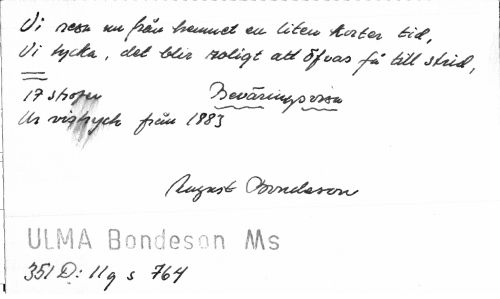 Vi resa nu från hemmet en liten korter tid,
Vi tycka, det blir roligt att öfvas få till strid,
17 strofer Beväringsvisa
Ur vistryck från 1883
August Bondeson
ULMA Bondeson Ms
351 D: 11g s 764